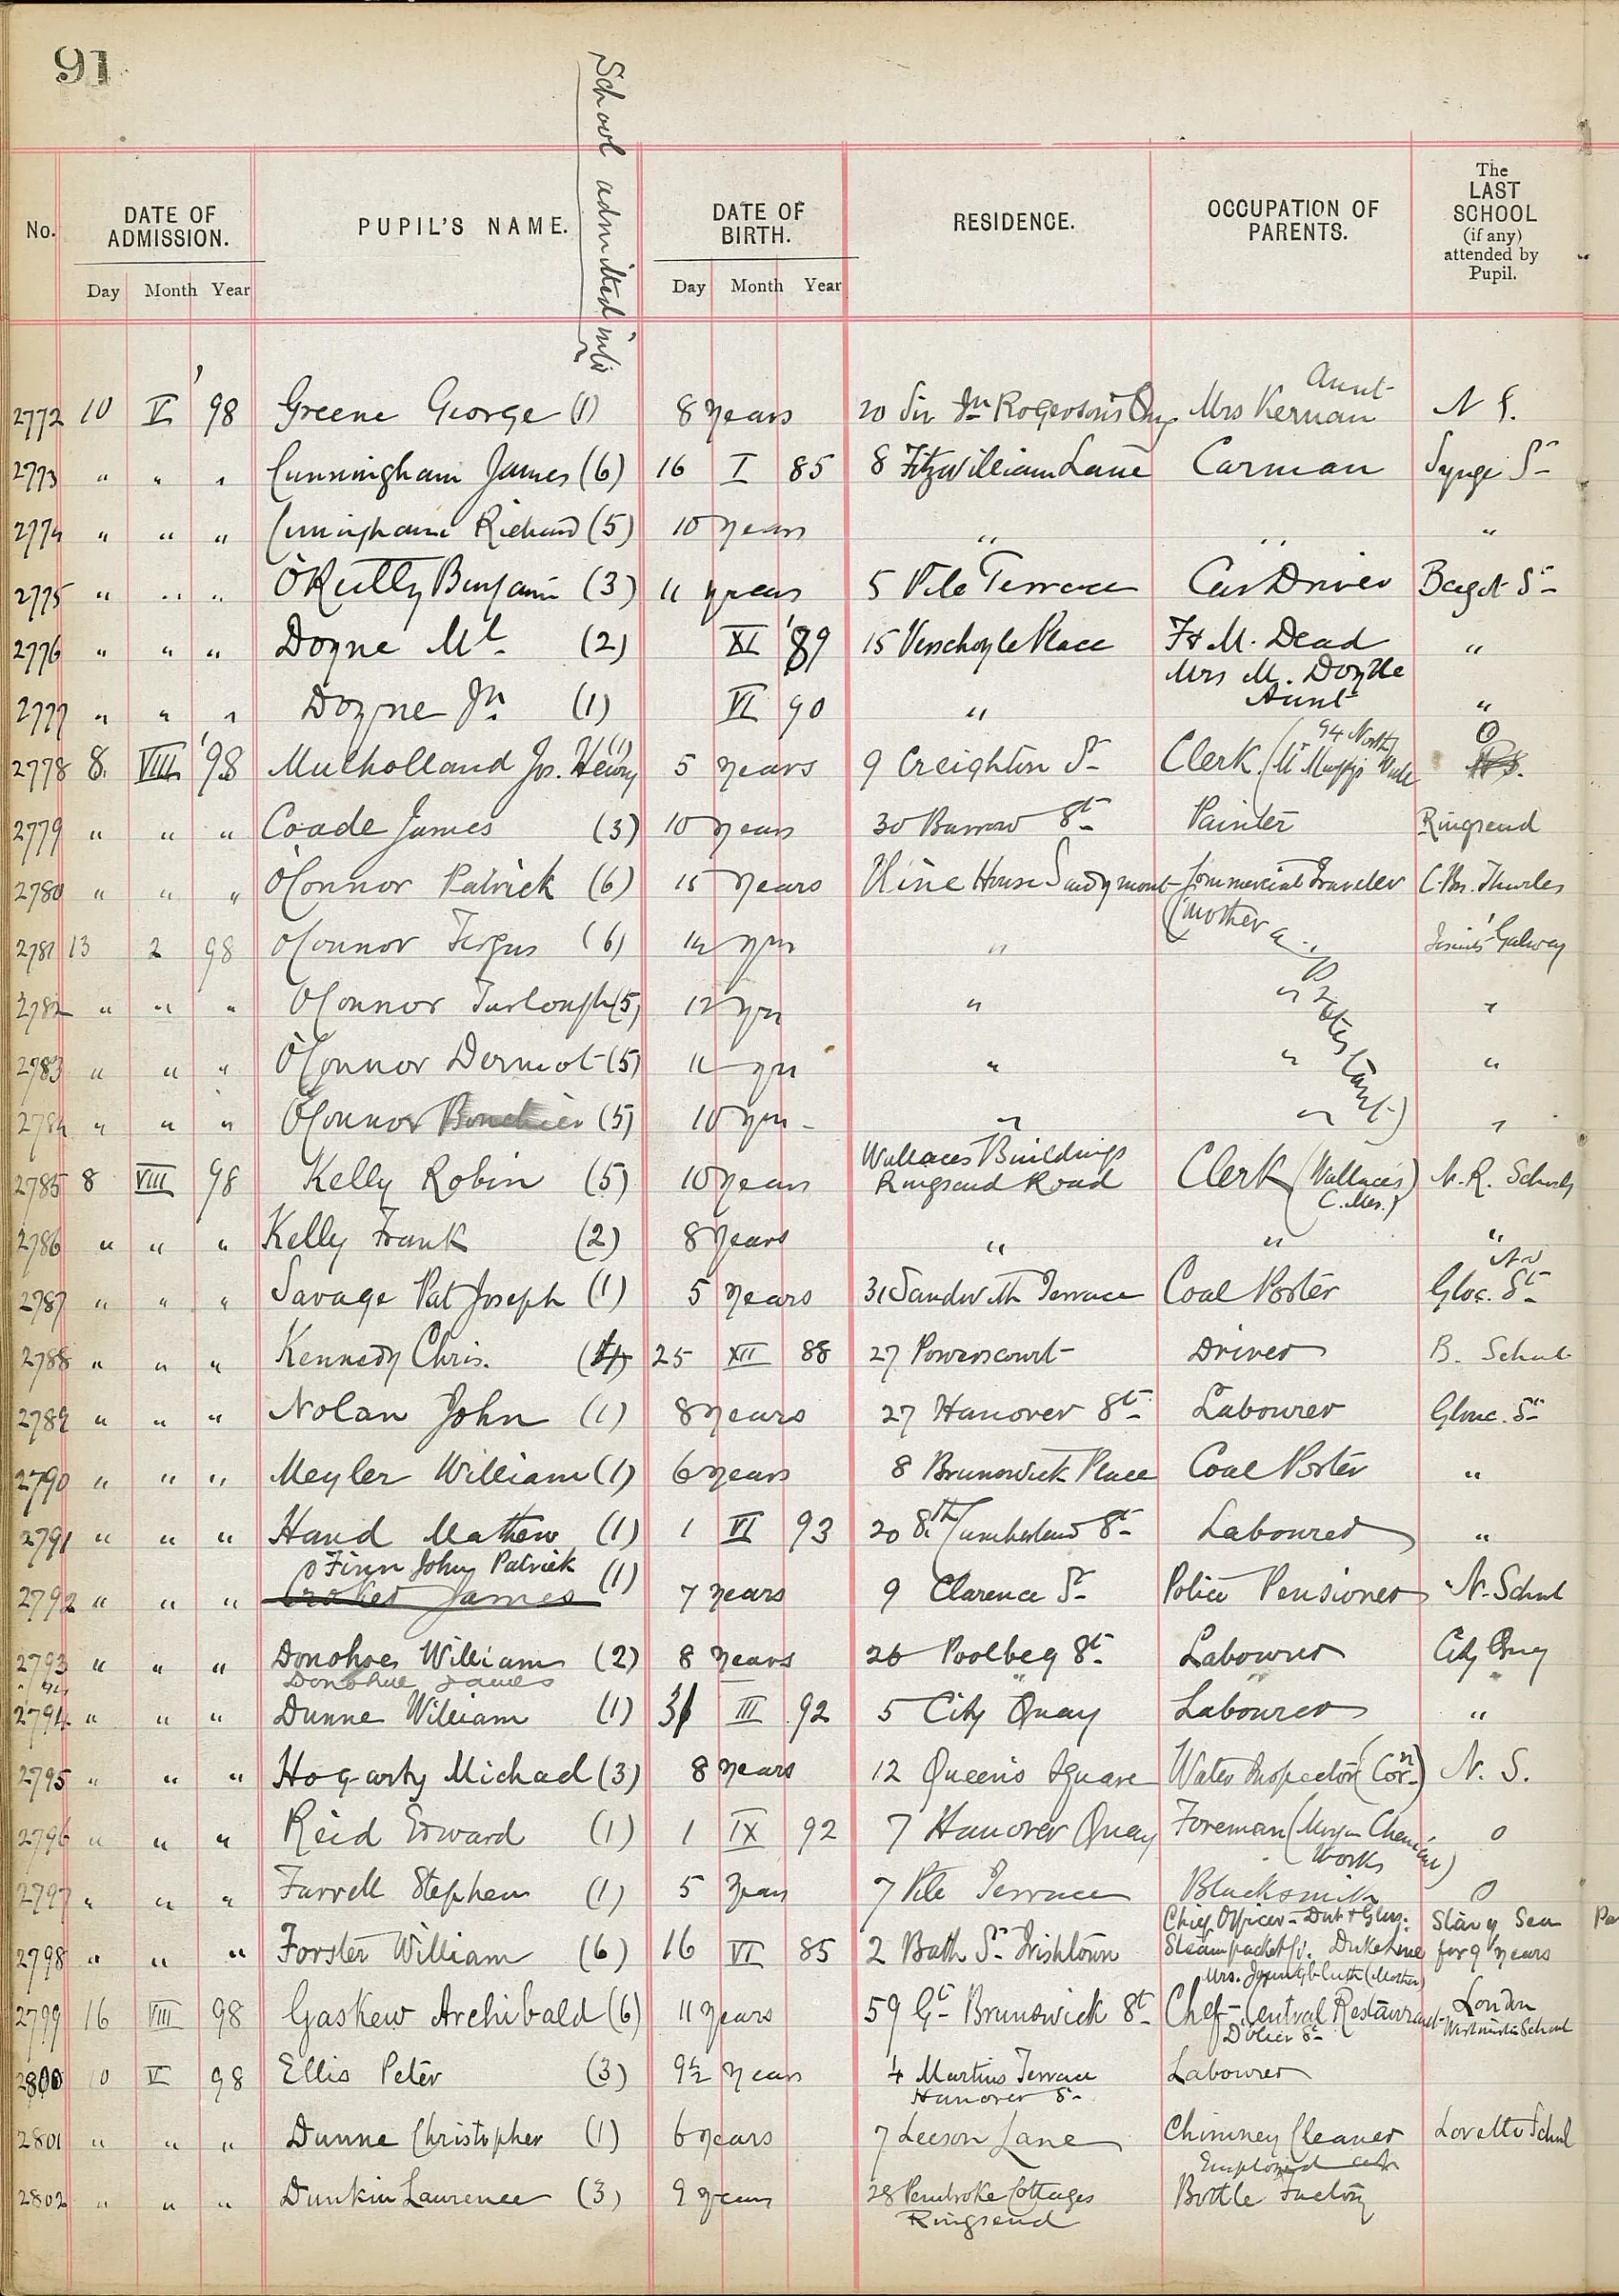 91
School admitted into
No.
DATE OF ADMISSION.
PUPIL'S NAME.
DATE OF BIRTH.
RESIDENCE.
OCCUPATION OF PARENTS.
The LAST SCHOOL (if any) attended by Pupil.
Day Month Year
Day Month Year
Aunt
2772 10 V '98 Greene George (1) 8 years 20 Sir Jn Rogerson's Quy Mrs Kernan N S.
2773 " " " Cunningham James (6) 16 I 85 8 Fitzwilliam Lane Carman Synge St
2774 " " " Cunningham Richard (5) 10 years " " "
2775 " " " O'Reilly Benjamin (3) 11 years 5 Pile Terrace Car Driver Bagot St
2776 " " " Doyne Ml. (2) XI '89 15 Verschoyle Place F & M. Dead "
Mrs M. Doyne
2777 " " " Doyne Jn. (1) VI 90 " Aunt "
2778 8. VIII '98 Mulholland Jos. Henry (1) 5 years 9 Creighton St Clerk (94 North Wall O
2779 " " " Coade James (3) 10 years 30 Barrow St Painter Ringsend
2780 " " " O'Connor Patrick (6) 15 years House Sandymount Commercial Traveler C. Br. Thurles
(mother a Protestant)
2781 13 2 98 O'Connor Fergus (6) 14 yrs " Jesuits' Galway
2782 " " " O'Connor Turlough (5) 12 yrs " " "
2783 " " " O'Connor Dermot (5) 11 yrs " " "
2784 " " " O'Connor (5) 10 yrs " " "
Wallace's Buildings
2785 8 VIII 98 Kelly Robin (5) 10 years Ringsend Road Clerk (Wallace's C. Mer.) N. R. Schools
2786 " " " Kelly Frank (2) 8 years " " "
2787 " " " Savage Pat Joseph (1) 5 years 31 Sandwith Terrace Coal Porter Gloc. St
2788 " " " Kennedy Chris. (4) 25 XII 88 27 Powerscourt Driver B. School
2789 " " " Nolan John (1) 8 years 27 Hanover St Labourer Glouc. St
2790 " " " Meyler William (1) 6 years 8 Brunswick Place Coal Porter "
2791 " " " Hand Mathew (1) 1 VI 93 20 Sth Cumberland St Labourer "
O'Finn John Patrick
2792 " " " Croker James (1) 7 years 9 Clarence St Police Pensioner N. School
2793 " " " Donohoe William (2) 8 years 26 Poolbeg St Labourer City Quay
Donohue James
2794 " " " Dunne William (1) 31 III 92 5 City Quay Labourer "
2795 " " " Hogarty Michael (3) 8 years 12 Queen's Square Water Inspector (Corn) N. S.
2796 " " " Reid Edward (1) 1 IX 92 7 Hanover Quay Foreman (Morgan Chemical Works) O
2797 " " " Farrell Stephen (1) 5 years 7 Pile Terrace Blacksmith O
Chief Officer - Dub & Glas.
2798 " " " Forster William (6) 16 VI 85 2 Bath St Irishtown Steampacket Co. Duke Line Stay Sea for 9 years
2799 16 VIII 98 Gaskew Archibald (6) 11 years 59 Gt Brunswick St Chef - Central Restaurant D'Olier St London Westminster School
2800 10 V 98 Ellis Peter (3) 9½ years 4 Martins Terrace Labourer
Hanover St
2801 " " " Dunne Christopher (1) 6 years 7 Leeson Lane Chimney Cleaner Loretto School
Employed at
2802 " " " Dunkin Laurence (3) 9 years 28 Pembroke Cottages Bottle Factory
Ringsend